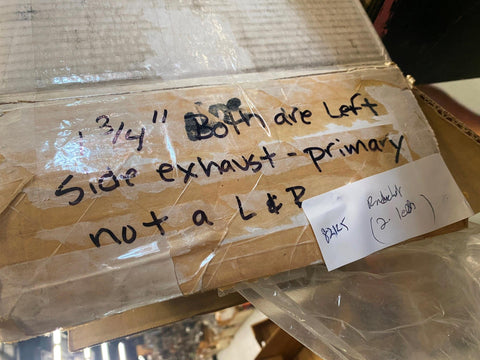 1 3/4" Both are Left
Side exhaust - primary
not a L & R
(2 left)